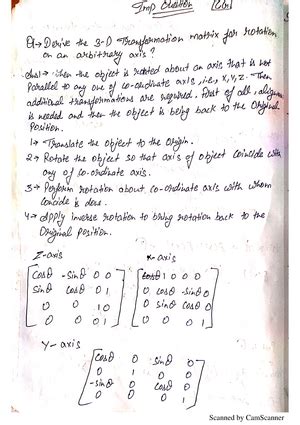 Imp Question
Q1→ Derive the 3-D Transformation matrix for rotation
on an arbitrary axis?
Ans:→ when the object is rotated about an axis that is not
parallel to any one of co-ordinate axis, i.e., X, Y, Z. Then
additional transformations are required. First of all, alignment
is needed and then the object is being back to the Original
Position.
1→ Translate the object to the Origin.
2→ Rotate the object so that axis of object coincide with
any of co-ordinate axis.
3→ Perform rotation about co-ordinate axis with whom
Concide is done.
4→ Apply inverse rotation to bring rotation back to the
Original Position.
Z-axis X-axis
cosθ -sinθ 0 0 1 0 0 0
sinθ cosθ 0 1 0 cosθ -sinθ 0
0 0 1 0 0 sinθ cosθ 0
0 0 0 1 0 0 0 1
Y-axis
cosθ 0 sinθ 0
0 1 0 0
-sinθ 0 cosθ 0
0 0 0 1
Scanned by CamScanner